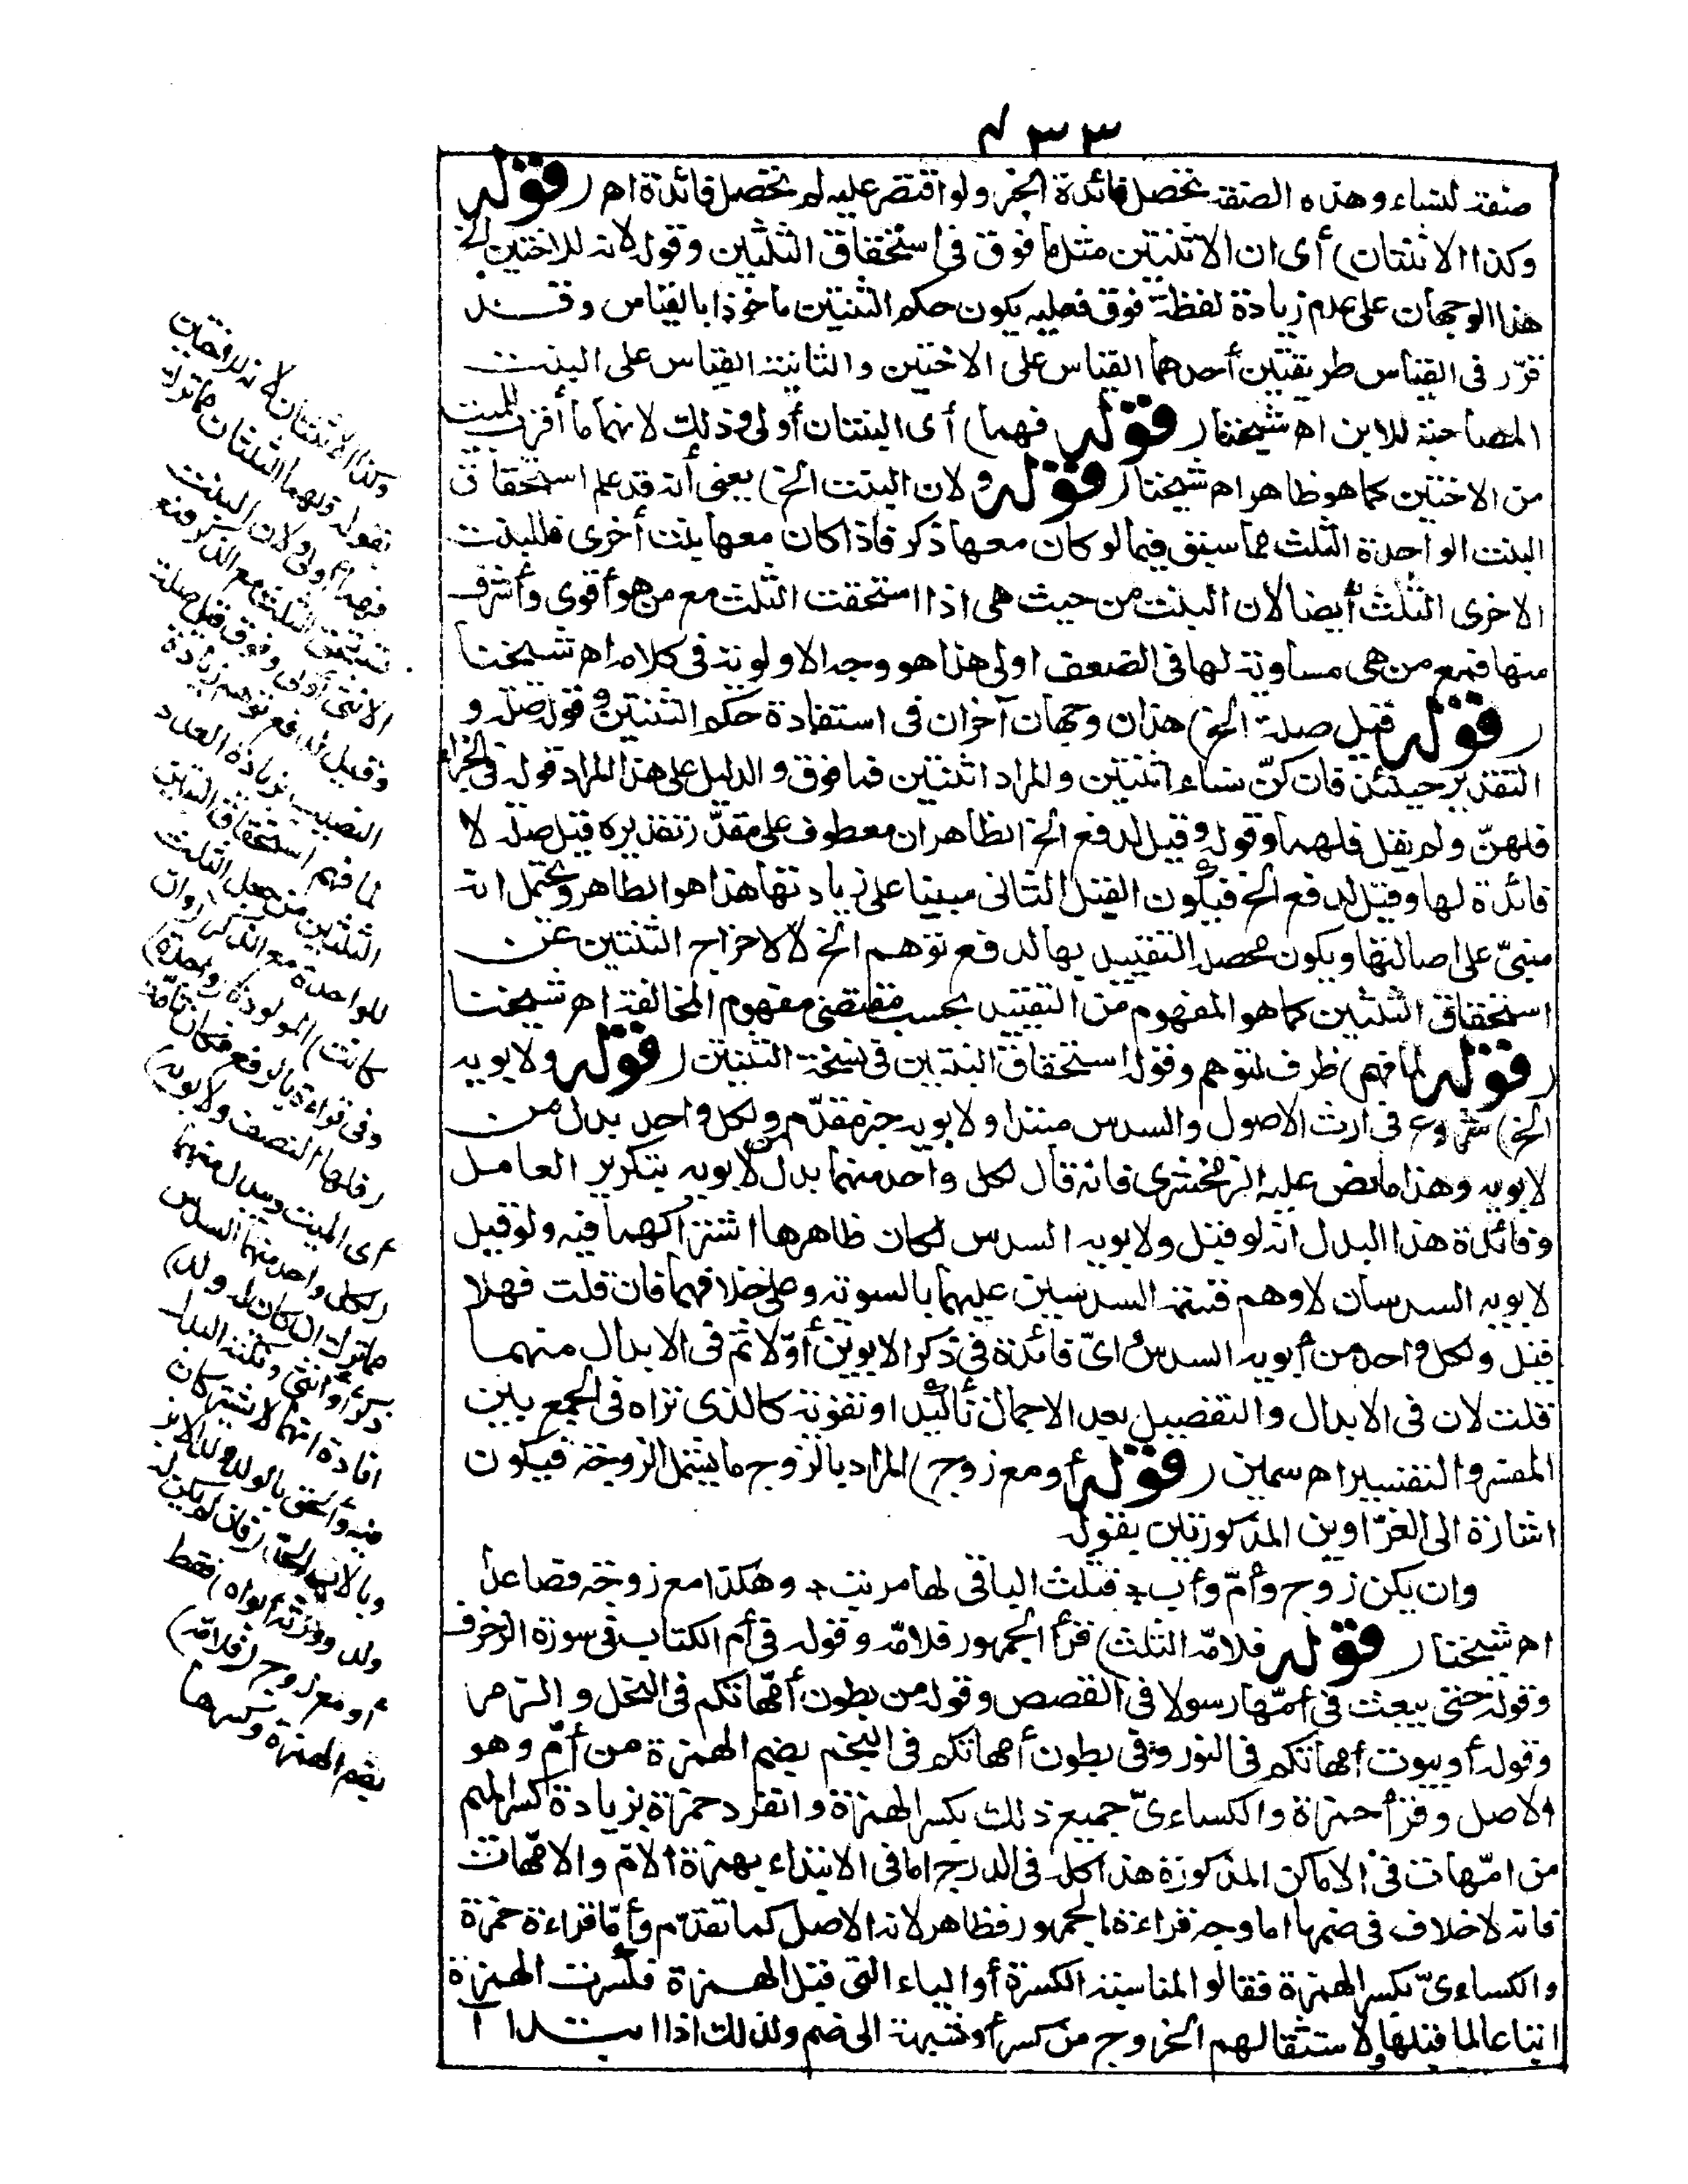 ٤٣٣
صفة لنساء وهذه الصفة تحصل فائدة الخبر ولو اقتصر عليه لم تحصل فائدة اه (قوله
وكذا الاثنتان) أى ان الاثنتين مثل ما فوق فى استحقاق الثلثين وقوله لانه للاختين الخ
هذا الوجهان على عدم زيادة لفظة فوق فعليه يكون حكم الثنتين ماخوذا بالقياس وقد
قرّر فى القياس طريقتين أحدهما القياس على الاختين والثانية القياس على البنت
المصاحبة للابن اه شيخنا (قوله فهما) أى البنتان أولى وذلك لانهما أقرب للميت
من الاختين كما هو ظاهر اه شيخنا (قوله ولان البنت الخ) يعنى أنه قد علم استحقاق
البنت الواحدة الثلث مما سبق فيما لو كان معها ذكر فاذا كان معها بنت أخرى فللبنت
الاخرى الثلث أيضا لان البنت من حيث هى اذا استحقت الثلث مع من هو أقوى وأشرف
منها فمع من هى مساوية لها فى الضعف اولى هذا هو وجه الاولوية فى كلامه اه شيخنا
(قوله قيل صلة الخ) هذان وجهان آخران فى استفادة حكم الثنتين وقوله صلة و
التقدير حينئذ فان كنّ نساء اثنتين والمراد اثنتين فما فوق والدليل على هذا المراد قوله فى الجزاء
فلهنّ ولم يقل فلهما وقوله وقيل لدفع الخ الظاهر انه معطوف على مقدّر تقديره قيل صلة لا
فائدة لها وقيل لدفع الخ فيكون القيل الثانى مبنيا على زيادتها هذا هو الظاهر ويحتمل انه
مبنىّ على اصالتها ويكون محصل التقييد بها لدفع توهم الخ لا لاخراج الثنتين عن
استحقاق الثلثين كما هو المفهوم من التقييد بحسب مقتضى مفهوم المخالفة اه شيخنا
(قوله لما فهم) ظرف لتوهم وقوله استحقاق البنتين فى نسخة الثنتين (قوله ولابويه
الخ) شروع فى ارث الاصول والسدس مبتدا ولابويه خبر مقدّم ولكل واحد بدل من
لابويه وهذا ما نص عليه الزمخشرى فانه قال لكل واحد منهما بدل من لابويه بتكرير العامل
وفائدة هذا البدل انه لو قيل ولابويه السدس لكان ظاهرها اشتراكهما فيه ولو قيل
لابويه السدسان لاوهم قسمة السدسين عليهما بالسوية وعلى خلافهما فان قلت فهلا
قيل ولكل واحد من أبويه السدس اىّ فائدة فى ذكر الابوين أوّلا ثم فى الابدال منهما
قلت لان فى الابدال والتفصيل بعد الاجمال تأكيدا وتقوية كالذى تراه فى الجمع بين
المفسر والتفسير اه سمين (قوله أو مع زوج) المراد بالزوج ما يشمل الزوجة فيكون
اشارة الى الغرّاوين المذكورتين بقوله
وان يكن زوج وأمّ وأب * فثلث الباقى لها مرتب * وهكذا مع زوجة فصاعدا
اه شيخنا (قوله فلامّه الثلث) قرأ الجمهور فلامّه وقوله فى أم الكتاب فى سورة الزخرف
وقوله حتى يبعث فى أمّها رسولا فى القصص وقوله من بطون أمّهاتكم فى النحل والزمر
وقوله أو بيوت أمهاتكم فى النور وفى بطون أمهاتكم فى النجم بضم الهمزة من أمّ وهو
الاصل وقرأ حمزة والكساءىّ جميع ذلك بكسر الهمزة وانفرد حمزة بزيادة كسر الميم
من امّهات فى الاماكن المذكورة هذا كله فى الدرج اما فى الابتداء بهمزة الامّ والامّهات
فانه لا خلاف فى ضمها اما وجه قراءة الجمهور فظاهر لانه الاصل كما تقدّم وأمّا قراءة حمزة
والكساءىّ بكسر الهمزة فقالوا لمناسبة الكسرة أو الياء التى قبل الهمزة فكسرت الهمزة
اتباعا لما قبلها ولاستثقالهم الخروج من كسر أو شبهه الى ضم ولذلك اذا ابتدا آ
وكذا الاثنتان لانه للاختين
بقوله فلهما الثلثان مما ترك
فهما أولى ولان البنت
تستحق الثلث مع الذكر فمع
الانثى أولى وفوق قيل صلة
وقيل لدفع توهم زيادة
النصيب بزيادة العدد
لما فهم استحقاق البنتين
الثلثين من جعل الثلث
للواحدة مع الذكر (وان
كانت) المولودة (واحدة)
وفى قراءة بالرفع فكان تامّة
(فلها النصف ولابويه)
أى الميت ويبدل منهما
(لكل واحد منهما السدس
مما ترك ان كان له ولد)
ذكر أو أنثى ونكتة البدل
افادة انهما لا يشتركان
فيه وألحق بالولد ولد الابن
وبالاب الجدّ (فان لم يكن له
ولد وورثه أبواه) فقط
أو مع زوج (فلامّه)
بضم الهمزة وكسرها